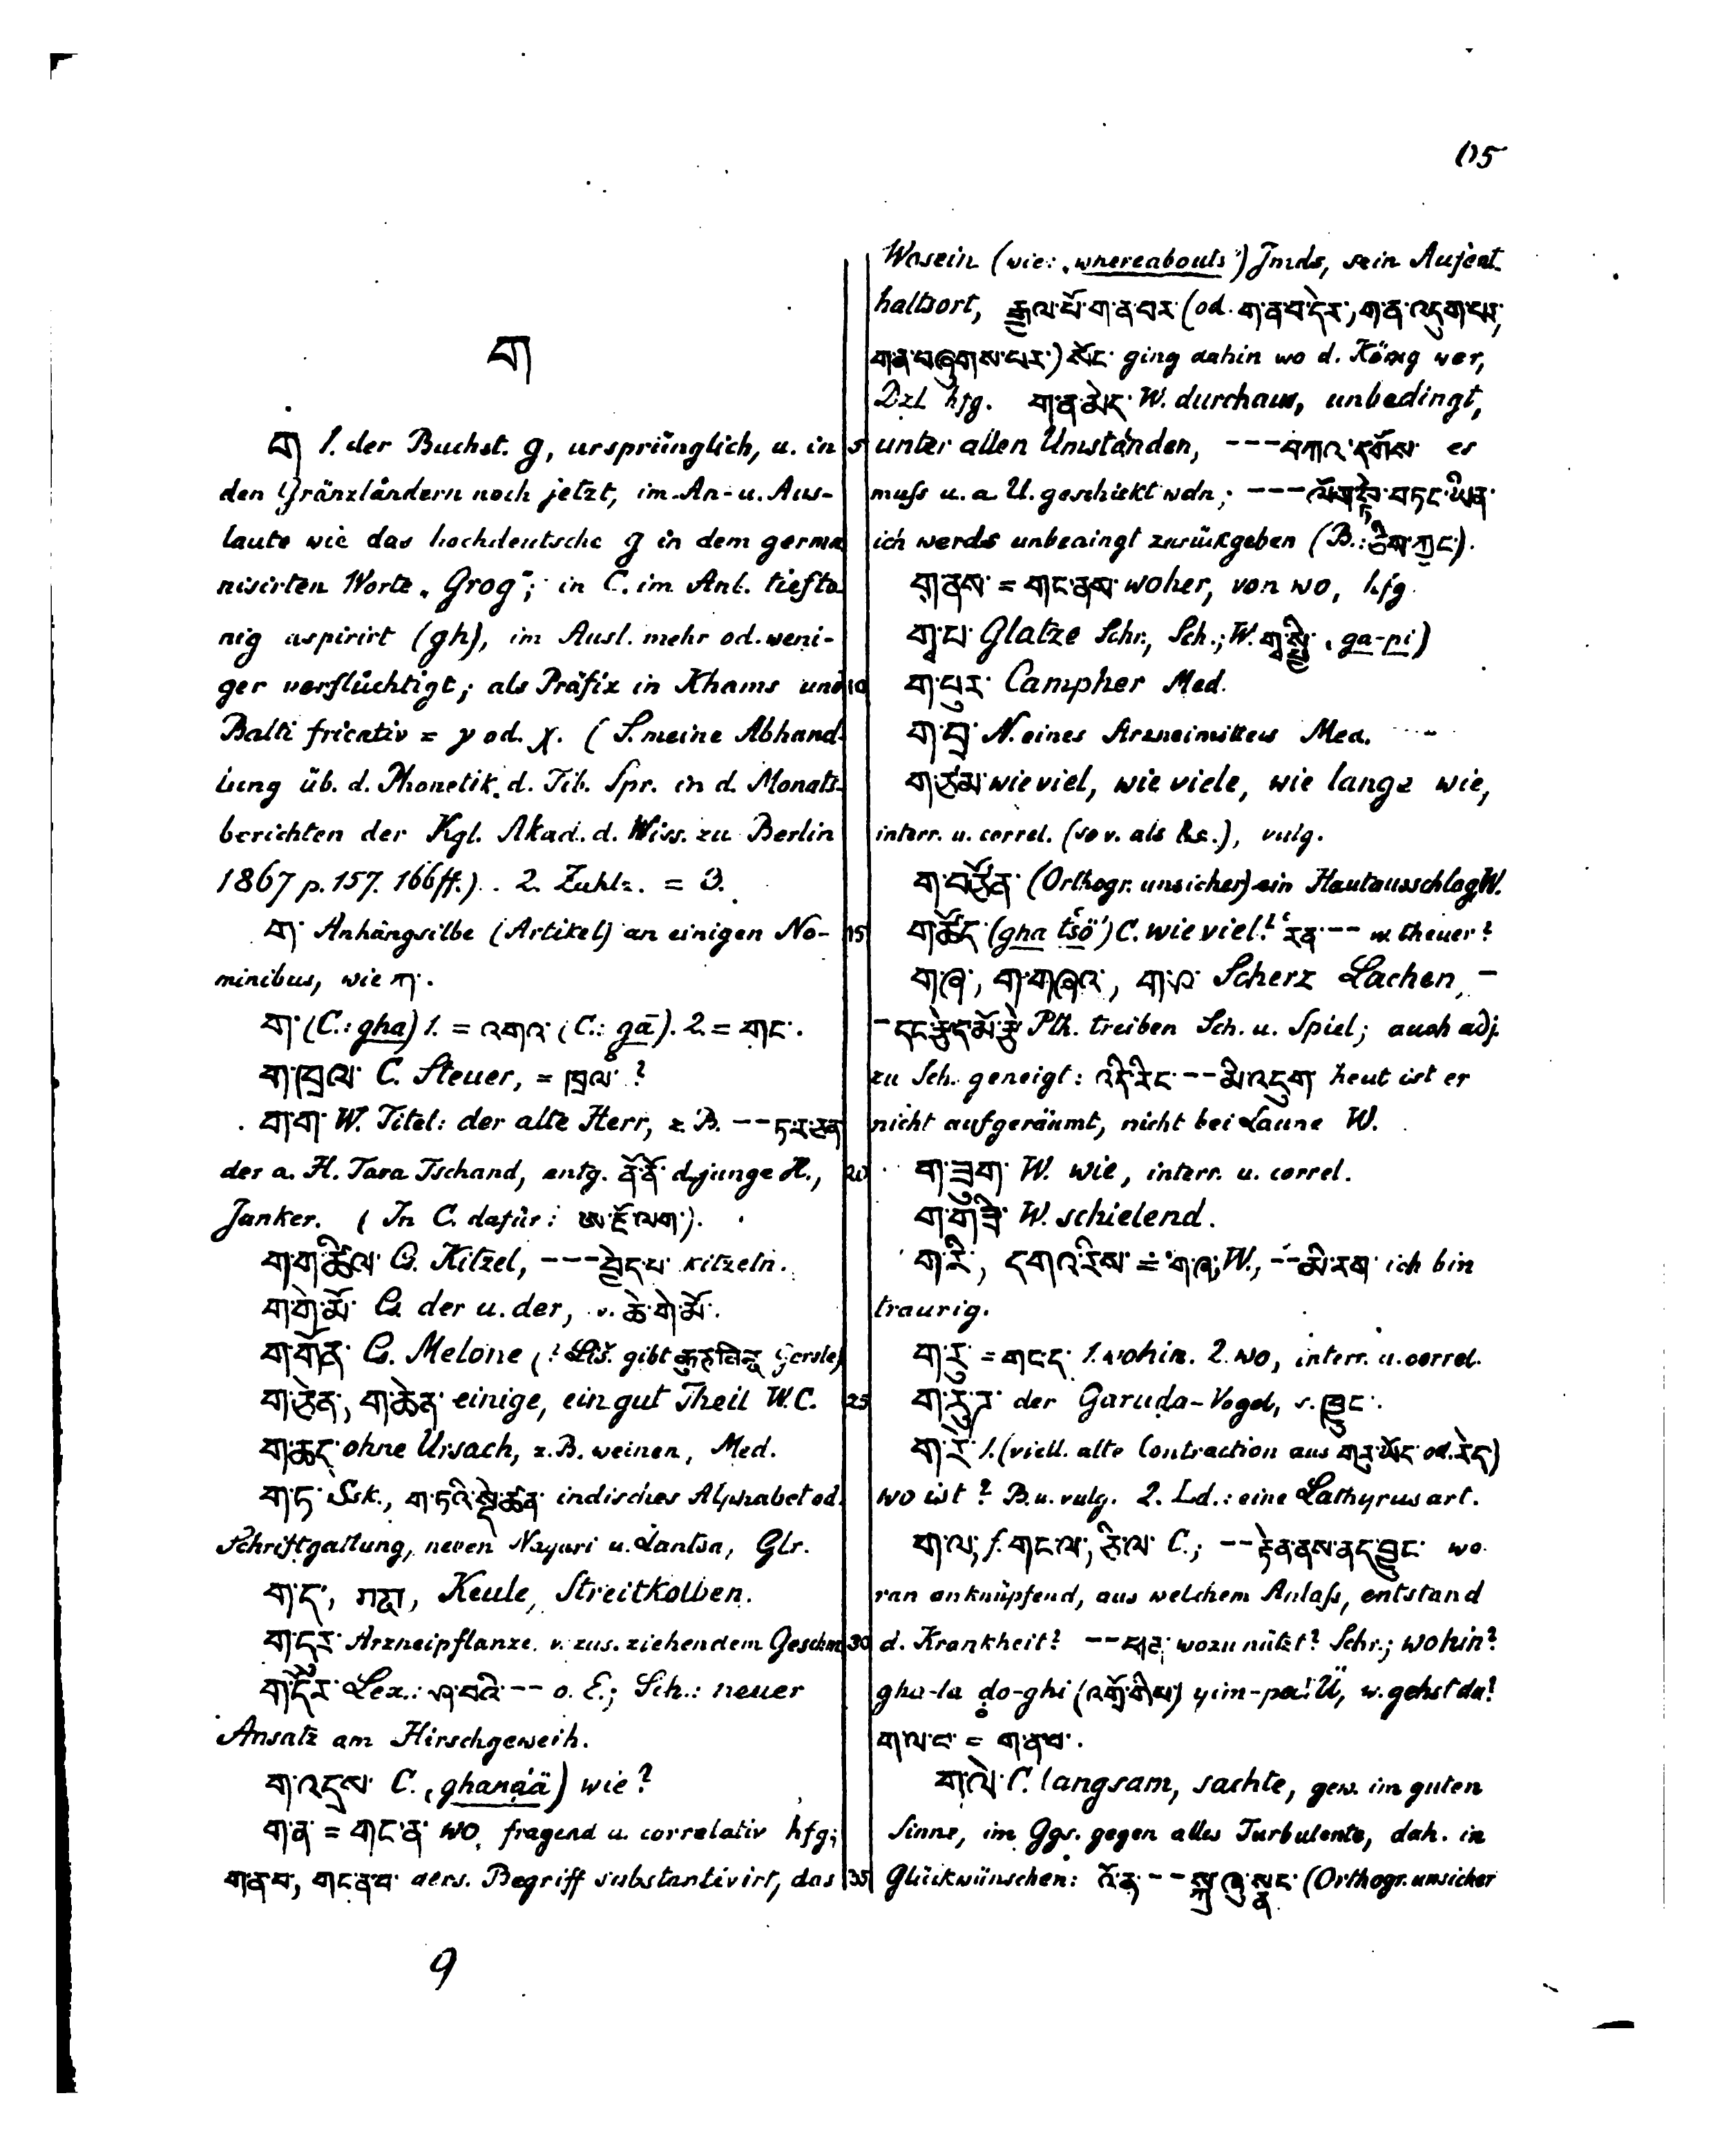 65
ག
ག 1. der Buchst. g, ursprünglich, u. in
den Gränzländern noch jetzt, im An- u. Aus-
laute wie das hochdeutsche g in dem germa
nisirten Worte „Grog“; in C. im Anl. tiefto
nig aspirirt (gh), im Ausl. mehr od. weni-
ger verflüchtigt; als Präfix in Khams und
Balti fricativ = γ od. χ. (S. meine Abhand-
lung üb. d. Phonetik d. Tib. Spr. in d. Monats-
berichten der Kgl. Akad. d. Wiss. zu Berlin
1867 p. 157. 166 ff.). 2. Zahlz. = 3.
ག་ Anhängsilbe (Artikel) an einigen No-
minibus, wie ཀ་.
ག་ (C.: gha) 1. = འགའ་ (C.: gā). 2 = གང་.
ག་ཁྲལ་ C. Steuer, = ཁྲལ་ ?
ག་ག་ W. Titel: der alte Herr, z. B. -- ཏ་ར་ཅན
der a. H. Tara Tschand, entg. ནོ་ནོ་ d. junge H.,
Junker. (In C. dafür: ཨ་ཇོ་ལག་).
ག་ག་ཚིལ་ C. Kitzel, --- བྱེད་པ་ kitzeln.
ག་གེ་མོ་ C. der u. der, v. ཆེ་གེ་མོ་.
ག་གོན་ C. Melone (? Liš. gibt Gerste)
ག་ཅེན་, ག་ཆེན་ einige, ein gut Theil W. C.
ག་ཆད་ ohne Ursach, z. B. weinen, Med.
ག་ཏ་ Ssk., ག་ཏའི་སྡེ་ཚན་ indisches Alphabet od.
Schriftgattung, neben Nagari u. Lantsa, Glr.
ག་ད་, गदा, Keule, Streitkolben.
ག་དུར་ Arzneipflanze v. zus. ziehendem Geschm
ག་དོར་ Lex.: ཤ་བའི་ -- o. E.; Sch.: neuer
Ansatz am Hirschgeweih.
ག་འདྲས་ C. (ghanḍä) wie?
ག་ན་ = གང་ན་ wo, fragend u. correlativ hfg;
ག་ན་བ་, གང་ན་བ་ ders. Begriff substantivirt, das
5
10
15
20
25
30
35
Wosein (wie: „whereabouts“) Jmds, sein Aufent
haltsort, རྒྱལ་པོ་ག་ན་བར་ (od. ག་ན་བ་དེར་, ག་ན་འདུག་པར་,
ག་ན་བཞུགས་པར་) སོང་ ging dahin wo d. König war,
Dzl hfg. ག་ན་མེད་ W. durchaus, unbedingt,
unter allen Umständen, --- བཀའ་དགོས་ es
muſs u. a. U. geschickt wdn; --- བཏང་ཡིན་
ich werde unbedingt zurückgeben (B.: ཅིས་ཀྱང་).
ག་ནས་ = གང་ནས་ woher, von wo, hfg.
ག་པ་ Glatze Schr., Sch.; W. (ga-pi)
ག་པུར་ Campher Med.
ག་བྲ་ N. eines Arzneimittels Med.
ག་ཙམ་ wie viel, wie viele, wie lange wie,
interr. u. correl. (so v. als &c.), vulg.
ག་བཙོན་ (Orthogr. unsicher) ein Hautausschlag, W.
ག་ཚོད་ (gha tsö') C. wie viel? རིན་ -- w. theuer?
ག་ཞ་, ག་གཞའ་, ག་ཤ་ Scherz Lachen, -
- དང་རྩེད་མོ་རྩེ་ Pth. treiben Sch. u. Spiel; auch adj.
zu Sch. geneigt: འདི་རིང་ -- མི་འདུག heut ist er
nicht aufgeräumt, nicht bei Laune W.
ག་ཟུག་ W. wie, interr. u. correl.
ག་གོ་ཟི་ W. schielend.
ག་རི་, དགའ་རིས་ = ག་ཞ་, W., -- མི་རག་ ich bin
traurig.
ག་རུ་ = གང་དུ་ 1. wohin. 2. wo, interr. u. correl.
ག་རུ་ཌ་ der Garuḍa-Vogel, s. ཁྱུང་.
ག་རེ་ 1. (viell. alte Contraction aus ག་རུ་ཡོད་ od. རེད་)
wo ist? B. u. vulg. 2. Ld.: eine Lathyrus art.
ག་ལ་, f. གང་ལ་, ཅི་ལ་ C.; -- རྟེན་ནས་ནད་བྱུང་ wo-
ran anknüpfend, aus welchem Anlaſs, entstand
d. Krankheit? -- ཕན་ wozu nützt? Schr.; wohin?
gha-la ḍo-ghi (འགྲོ་གི་) yim-pa? Ü, w. gehst du?
ག་ལ་བ་ = ག་ན་བ་.
ག་ལེ་ C. langsam, sachte, gew. im guten
Sinne, im Ggs. gegen alles Turbulente, dah. in
Glückwünschen: འོ་ན་ -- སྐྱ་ཞུ་སྣང་ (Orthogr. unsicher
9